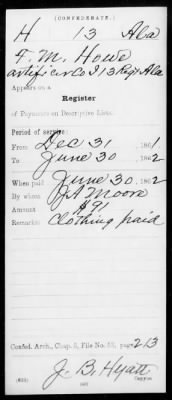 (CONFEDERATE.)
H 13 Ala
F. M. Howe
artificer Co I 13 Regt Ala
Appears on a
Register
of Payments on Descriptive Lists.
Period of service:
From Dec 31, 1861
To June 30, 1862
When paid June 30, 1862
By whom J A Moore
Amount $91
Remarks: Clothing paid
Confed. Arch., Chap. 5, File No. 53, page 213
J. B. Hyatt
Copyist.